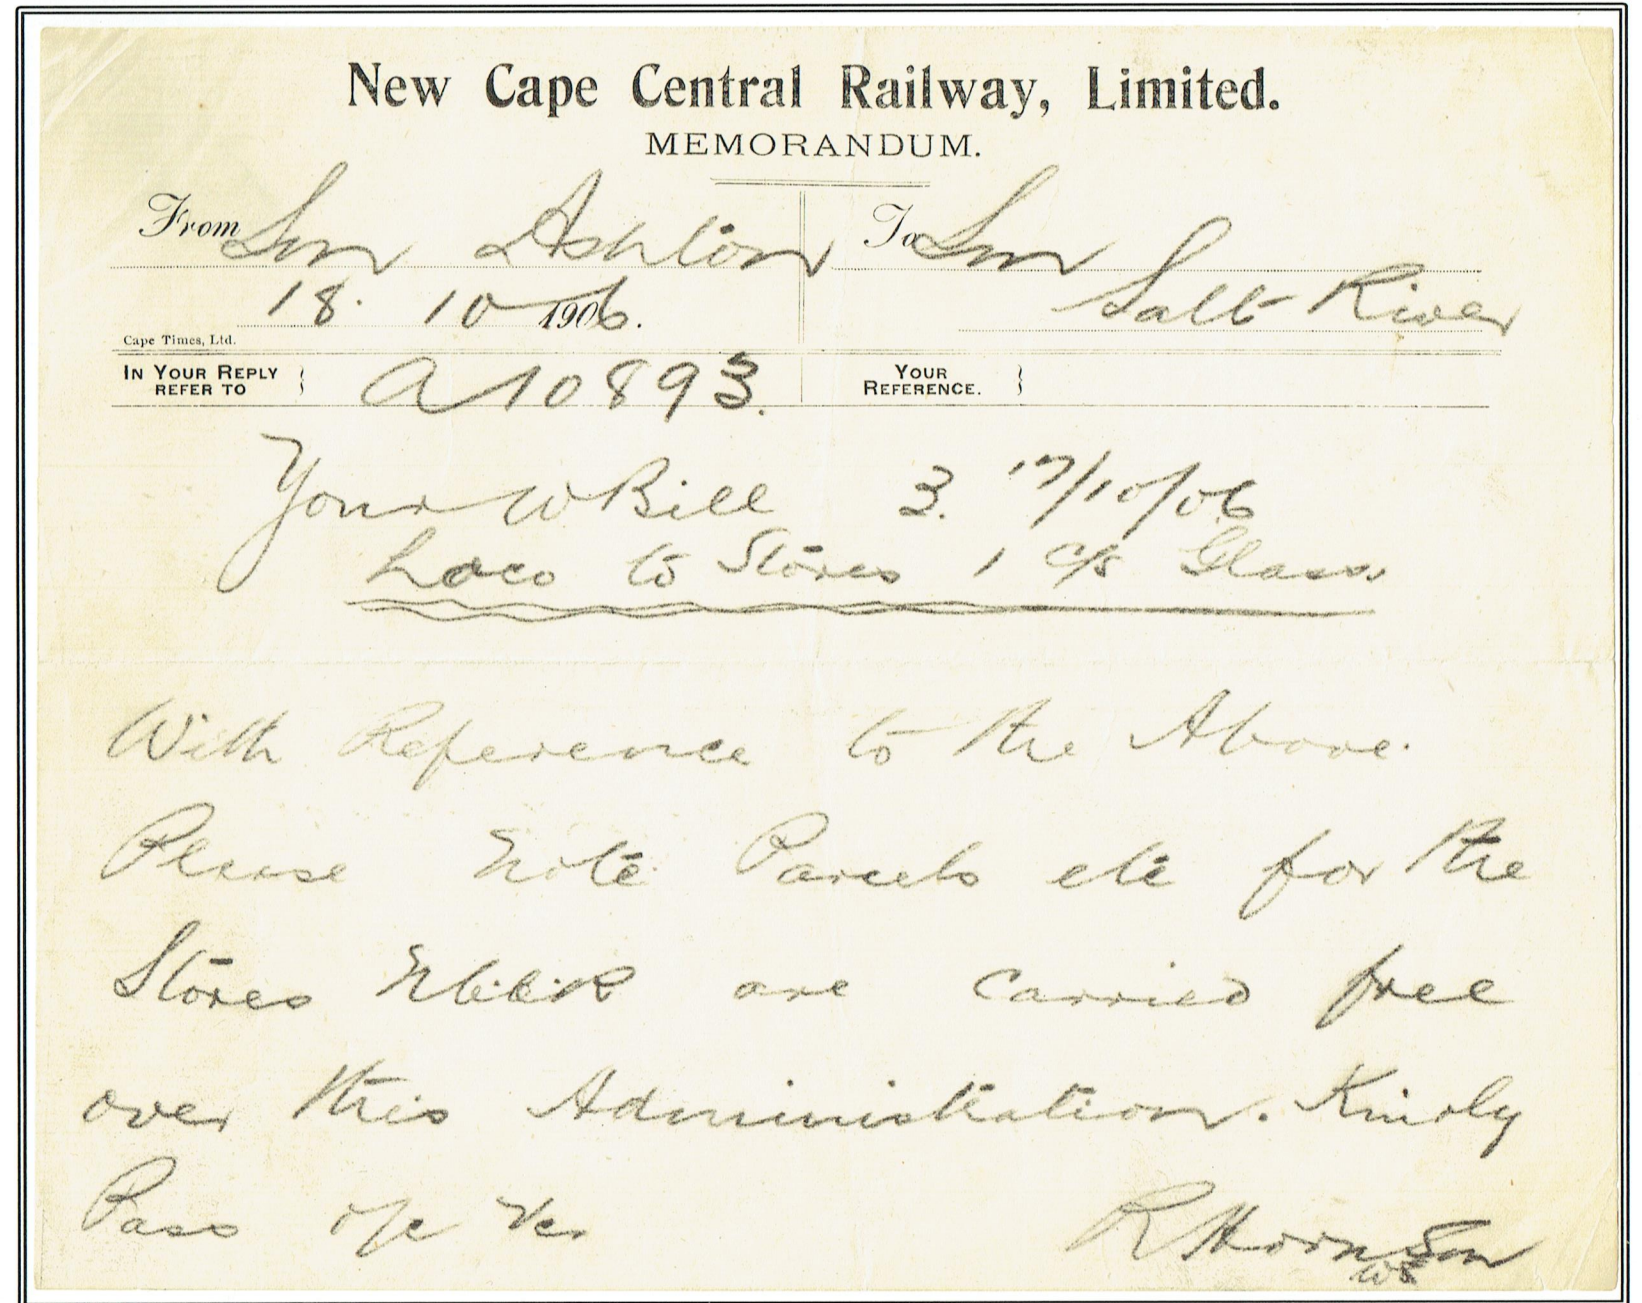 New Cape Central Railway, Limited.
MEMORANDUM.
From Sm Ashton
To Sm
Salt River
18. 10 1906.
Cape Times, Ltd.
IN YOUR REPLY REFER TO } A10893.
YOUR REFERENCE. }
Your W Bill 3. 17/10/06
Loco to Stores 1 c/s Glass
With Reference to the Above.
Please note Parcels etc for the
Stores are carried free
over this Administration. Kindly
Pass o/c